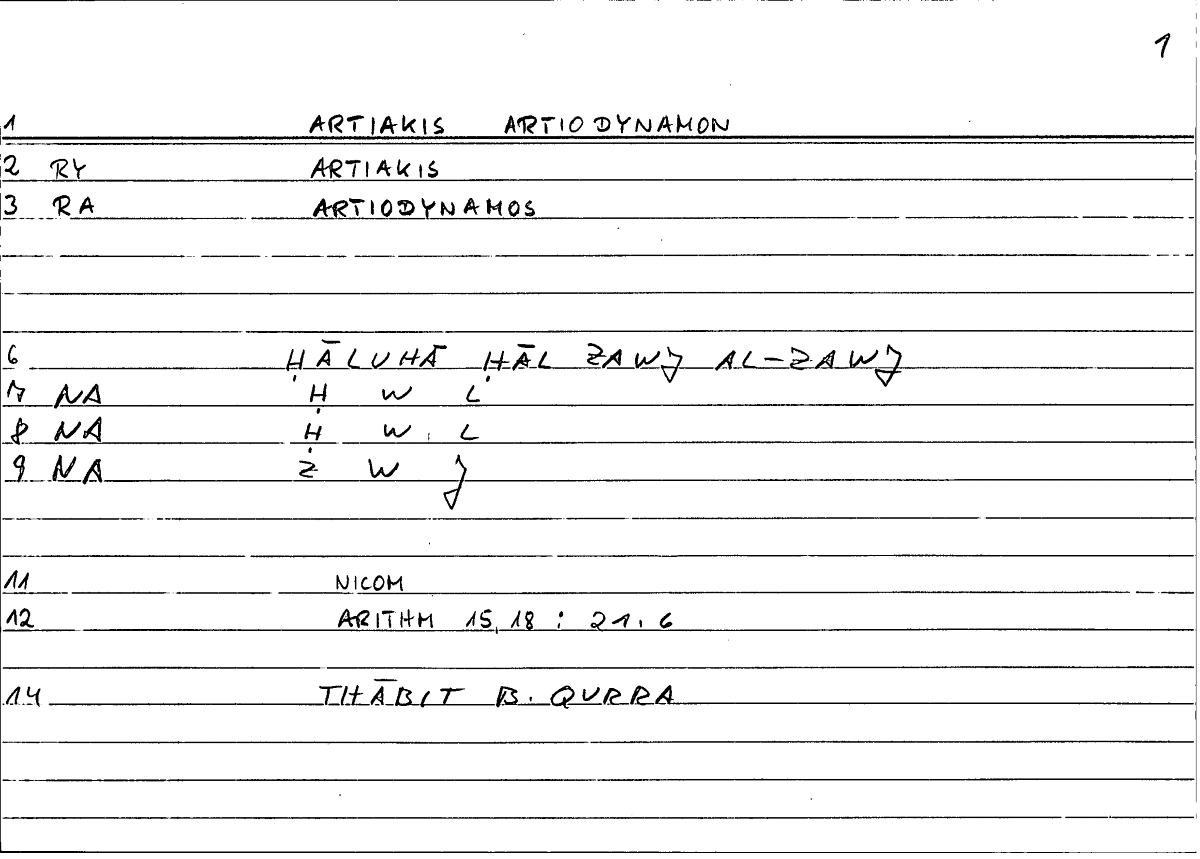 1
1 ARTIAKIS ARTIODYNAMON
2 RY ARTIAKIS
3 RA ARTIODYNAMOS
6 ḤĀLUHĀ ḤĀL ZAWJ AL-ZAWJ
7 NA Ḥ W L
8 NA Ḥ W L
9 NA Z W J
11 NICOM
12 ARITHM 15,18 : 21.6
14 THĀBIT B. QURRA